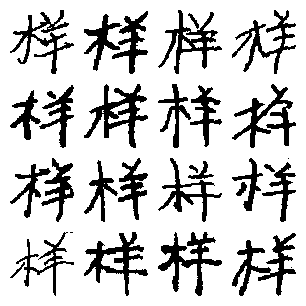 样样样样
样样样样
样样样样
样样样样